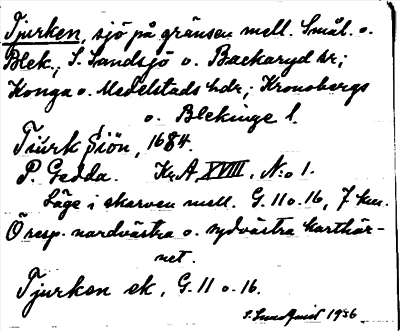 Tjurken, sjö på gränsen mell. Smål. o.
Blek.; S. Sandsjö o. Backaryd sr;
Konga o. Medelstads hdr; Kronobergs
o. Blekinge l.
Tiurk Siön, 1684.
P. Gedda. Kr.A XVIII, N:o 1.
Läge i skarven mell. G. 11 o. 16, 7 km.
Ö resp. nordvästra o. sydvästra karthör-
net.
Tjurken ek, G. 11 o. 16.
S. Lundquist 1936